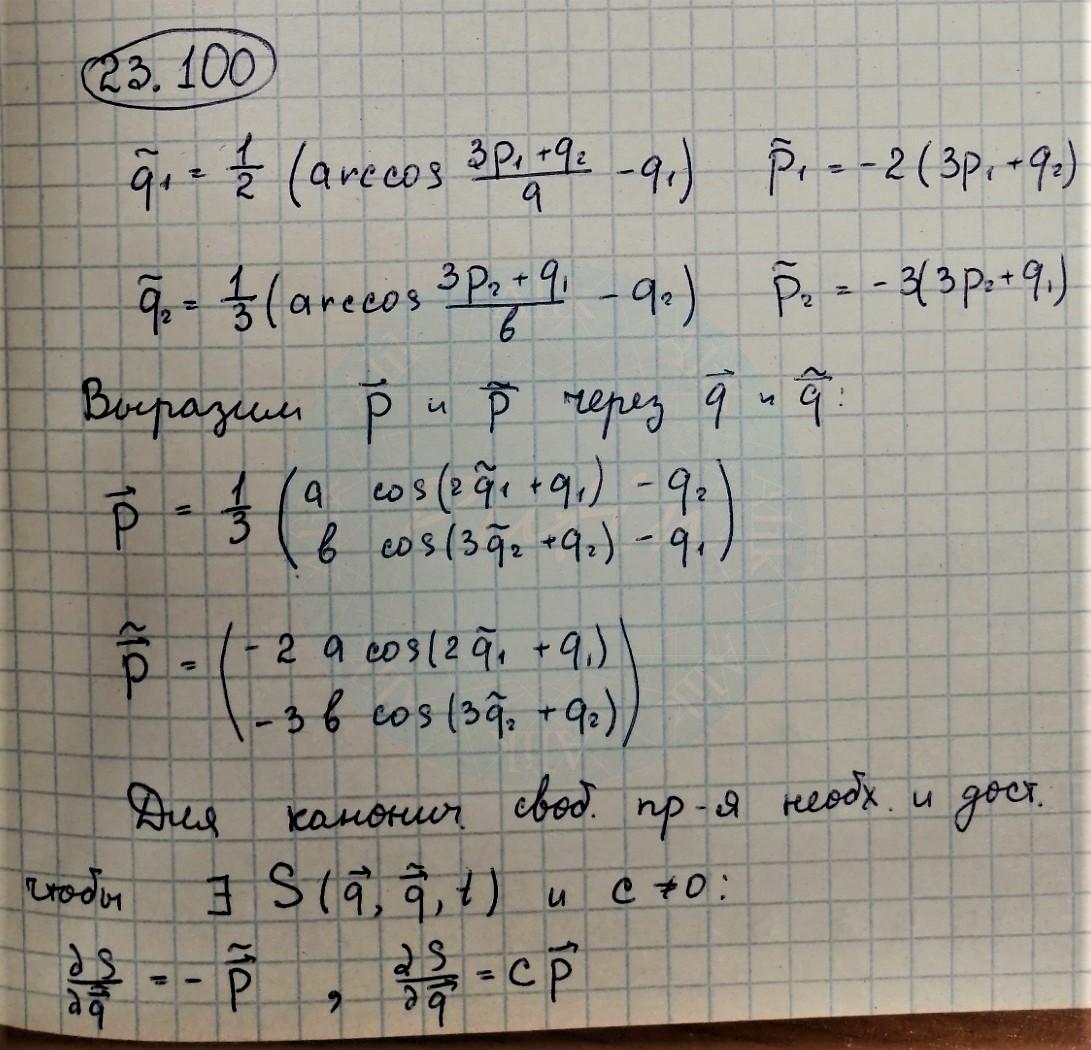 23.100
q̃₁ = 1/2 (arccos (3p₁ + q₂)/a − q₁) p̃₁ = −2(3p₁ + q₂)
q̃₂ = 1/3 (arccos (3p₂ + q₁)/b − q₂) p̃₂ = −3(3p₂ + q₁)
Выразим p⃗ и p⃗̃ через q⃗ и q⃗̃:
p⃗ = 1/3 (a cos(2q̃₁ + q₁) − q₂
b cos(3q̃₂ + q₂) − q₁)
p⃗̃ = (−2 a cos(2q̃₁ + q₁)
−3 b cos(3q̃₂ + q₂))
Для канонич. своб. пр-я необх. и дост.
чтобы ∃ S(q⃗, q⃗̃, t) и c ≠ 0:
∂S/∂q⃗̃ = − p⃗̃ , ∂S/∂q⃗ = c p⃗